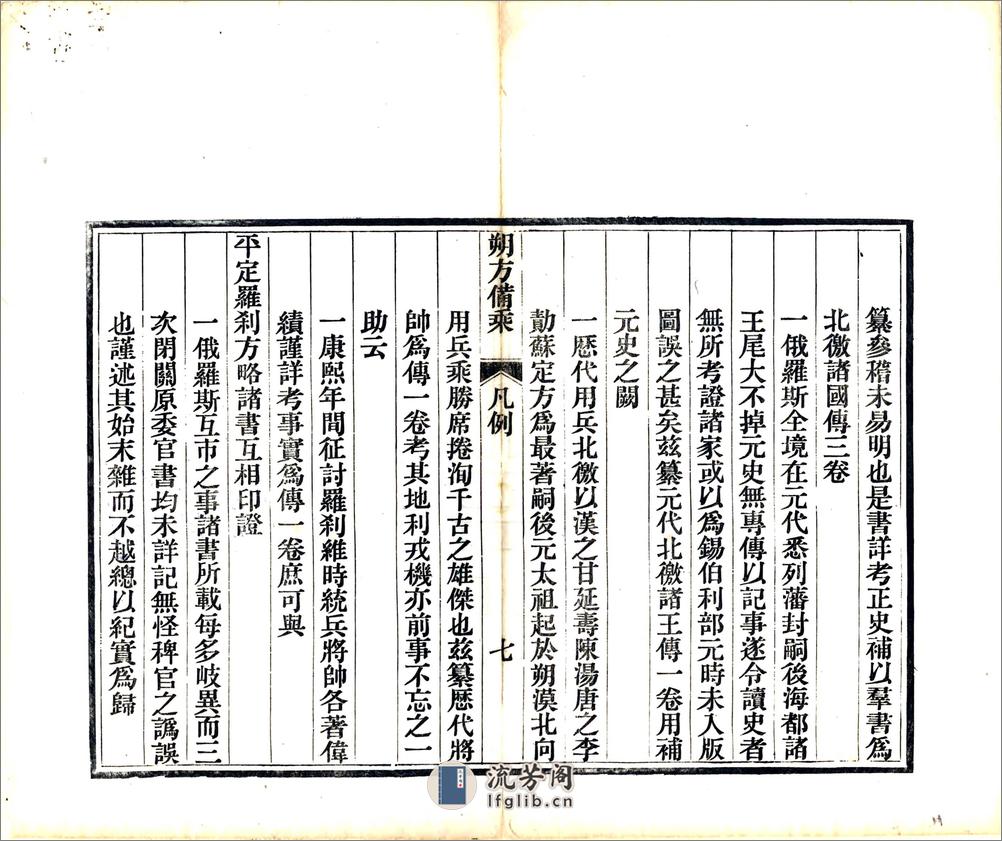 纂參稽未易明也是書詳考正史補以羣書爲
北徼諸國傳三卷
一俄羅斯全境在元代悉列藩封嗣後海都諸
王尾大不掉元史無專傳以記事遂令讀史者
無所考證諸家或以爲錫伯利部元時未入版
圖誤之甚矣兹纂元代北徼諸王傳一卷用補
元史之闕
一歷代用兵北徼以漢之甘延壽陳湯唐之李
勣蘇定方爲最著嗣後元太祖起於朔漠北向
朔方備乘
凡例
七
用兵乘勝席捲洵千古之雄傑也兹纂歷代將
帥爲傳一卷考其地利戎機亦前事不忘之一
助云
一康熙年間征討羅刹維時統兵將帥各著偉
績謹詳考事實爲傳一卷庶可與
平定羅刹方略諸書互相印證
一俄羅斯互市之事諸書所載每多岐異而三
次閉關原委官書均未詳記無怪稗官之譌誤
也謹述其始末雜而不越總以紀實爲歸
流芳阁
lfglib.cn